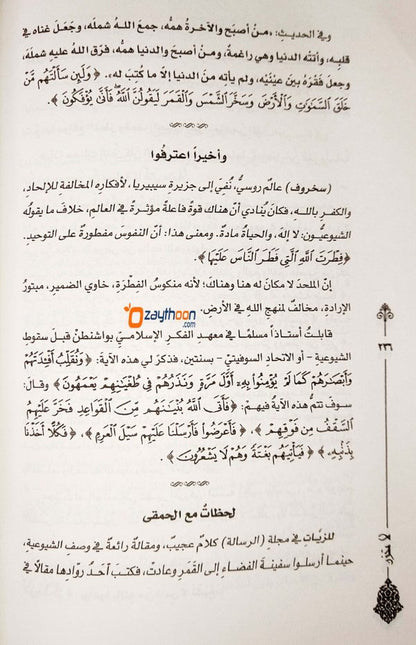 وفي الحديثِ: «منْ أصبحَ والآخرةُ همُّه، جمعَ اللهُ شملَه، وجَعَلَ غناه في
قلبِه، وأتتْه الدنيا وهي راغمةٌ، ومنْ أصبحَ والدنيا همُّه، فرّق اللهُ عليهِ شملَه،
وجعلَ فقْرَه بينَ عيْنَيْه، ولم يأتِه منَ الدنيا إلاّ ما كتبَ له». ﴿وَلَئِن سَأَلْتَهُم مَّنْ
خَلَقَ ٱلسَّمَٰوَٰتِ وَٱلْأَرْضَ وَسَخَّرَ ٱلشَّمْسَ وَٱلْقَمَرَ لَيَقُولُنَّ ٱللَّهُ فَأَنَّىٰ يُؤْفَكُونَ﴾
وأخيراً اعترفُوا
(سخروف) عالمٌ روسيٌّ، نُفِيَ إلى جزيرةِ سيبيريا، لأفكارِه المخالفةِ للإلحادِ،
والكفرِ باللهِ، فكانَ يُنادي أن هناك قوةً فاعلةً مؤثرةً في العالمِ، خلافَ ما يقولُه
الشيوعيُّون: لا إلهَ، والحياةُ مادةٌ. ومعنى هذا: أنَّ النفوسَ مفطورةٌ على التوحيدِ.
﴿فِطْرَتَ ٱللَّهِ ٱلَّتِى فَطَرَ ٱلنَّاسَ عَلَيْهَا﴾.
إنّ الملحدَ لا مكانَ له هنا وهناك؛ لأنه منكوسُ الفِطْرَةِ، خاوي الضميرِ، مبتورُ
الإرادةِ، مخالفٌ لمنهجِ اللهِ في الأرضِ.
Ozaythoon
.com
قابلتُ أستاذاً مسلماً في معهدِ الفكرِ الإسلاميِّ بواشنطن قبلَ سقوطِ
الشيوعيةِ - أو الاتحاد السوفيتيِّ - بسنتينِ، فذكرَ لي هذه الآيةَ: ﴿وَنُقَلِّبُ أَفْـِٔدَتَهُمْ
وَأَبْصَٰرَهُمْ كَمَا لَمْ يُؤْمِنُوا۟ بِهِۦٓ أَوَّلَ مَرَّةٍ وَنَذَرُهُمْ فِى طُغْيَٰنِهِمْ يَعْمَهُونَ﴾ وقال:
سوف تتمُّ هذه الآيةُ فيهم: ﴿فَأَتَى ٱللَّهُ بُنْيَٰنَهُم مِّنَ ٱلْقَوَاعِدِ فَخَرَّ عَلَيْهِمُ
ٱلسَّقْفُ مِن فَوْقِهِمْ﴾، ﴿فَأَعْرَضُوا۟ فَأَرْسَلْنَا عَلَيْهِمْ سَيْلَ ٱلْعَرِمِ﴾، ﴿فَكُلًّا أَخَذْنَا
بِذَنۢبِهِۦ﴾، ﴿فَيَأْتِيَهُم بَغْتَةً وَهُمْ لَا يَشْعُرُونَ﴾.
لحظاتٌ مع الحمقى
للزيّاتِ في مجلةِ (الرسالة) كلامٌ عجيبٌ، ومقالةٌ رائعةٌ في وصفِ الشيوعيةِ،
حينما أرسلُوا سفينةَ الفضاءِ إلى القمَرِ وعادت، فكتب أحدُ روادِها مقالاً في
٢٣٦
لا تحزن